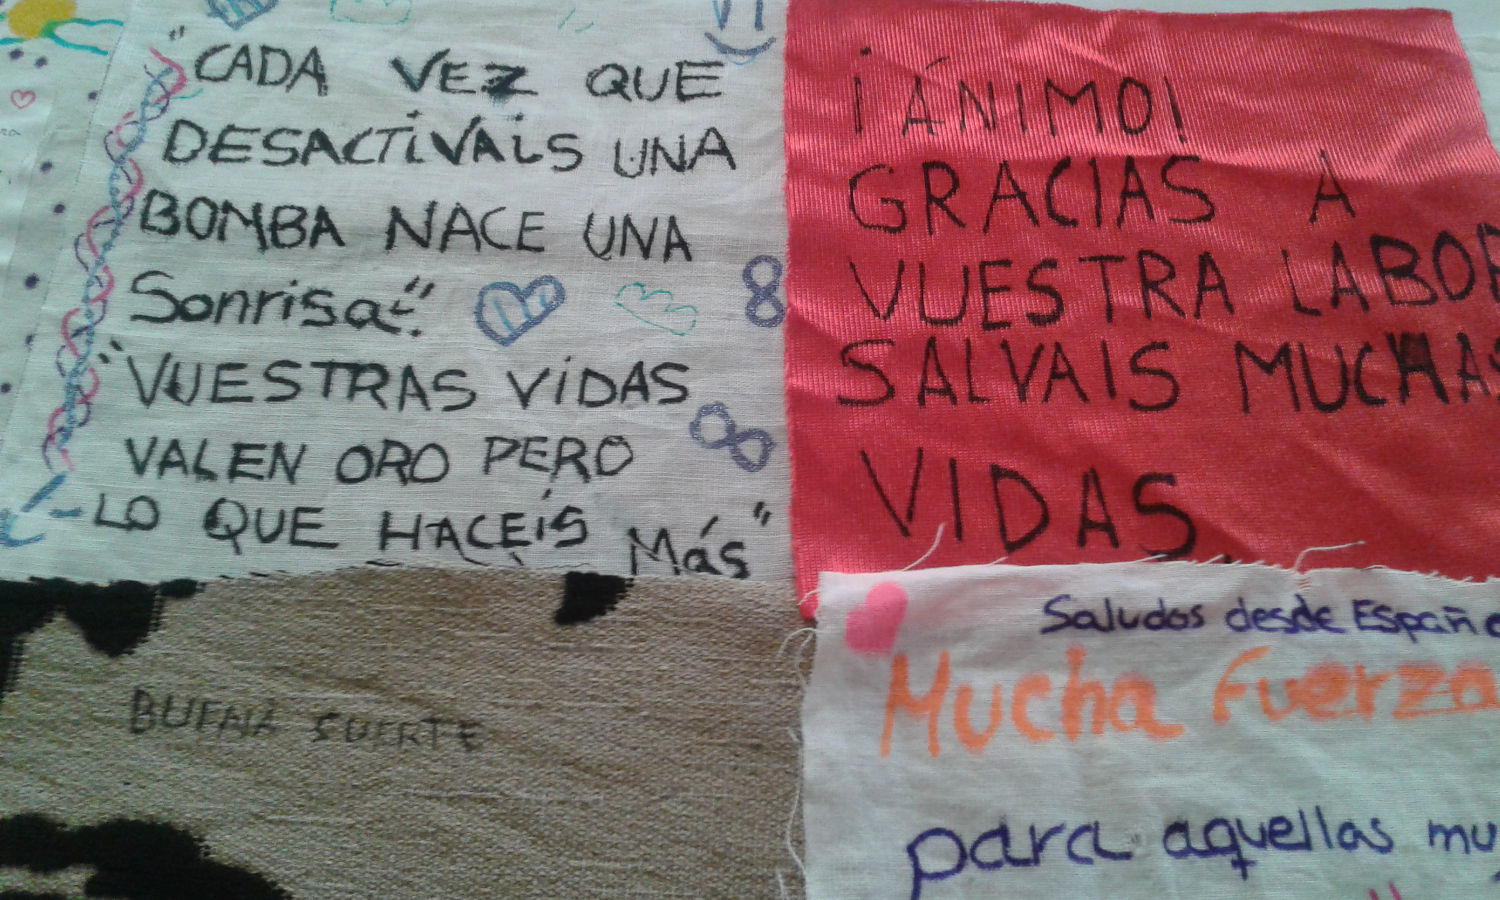 "CADA VEZ QUE
DESACTIVAIS UNA
BOMBA NACE UNA
Sonrisa"
"VUESTRAS VIDAS
VALEN ORO PERO
LO QUE HACEIS MÁS"
¡ÁNIMO!
GRACIAS A
VUESTRA LABOR
SALVAIS MUCHAS
VIDAS.
BUENA SUERTE
Saludos desde España
Mucha Fuerza
para aquellas